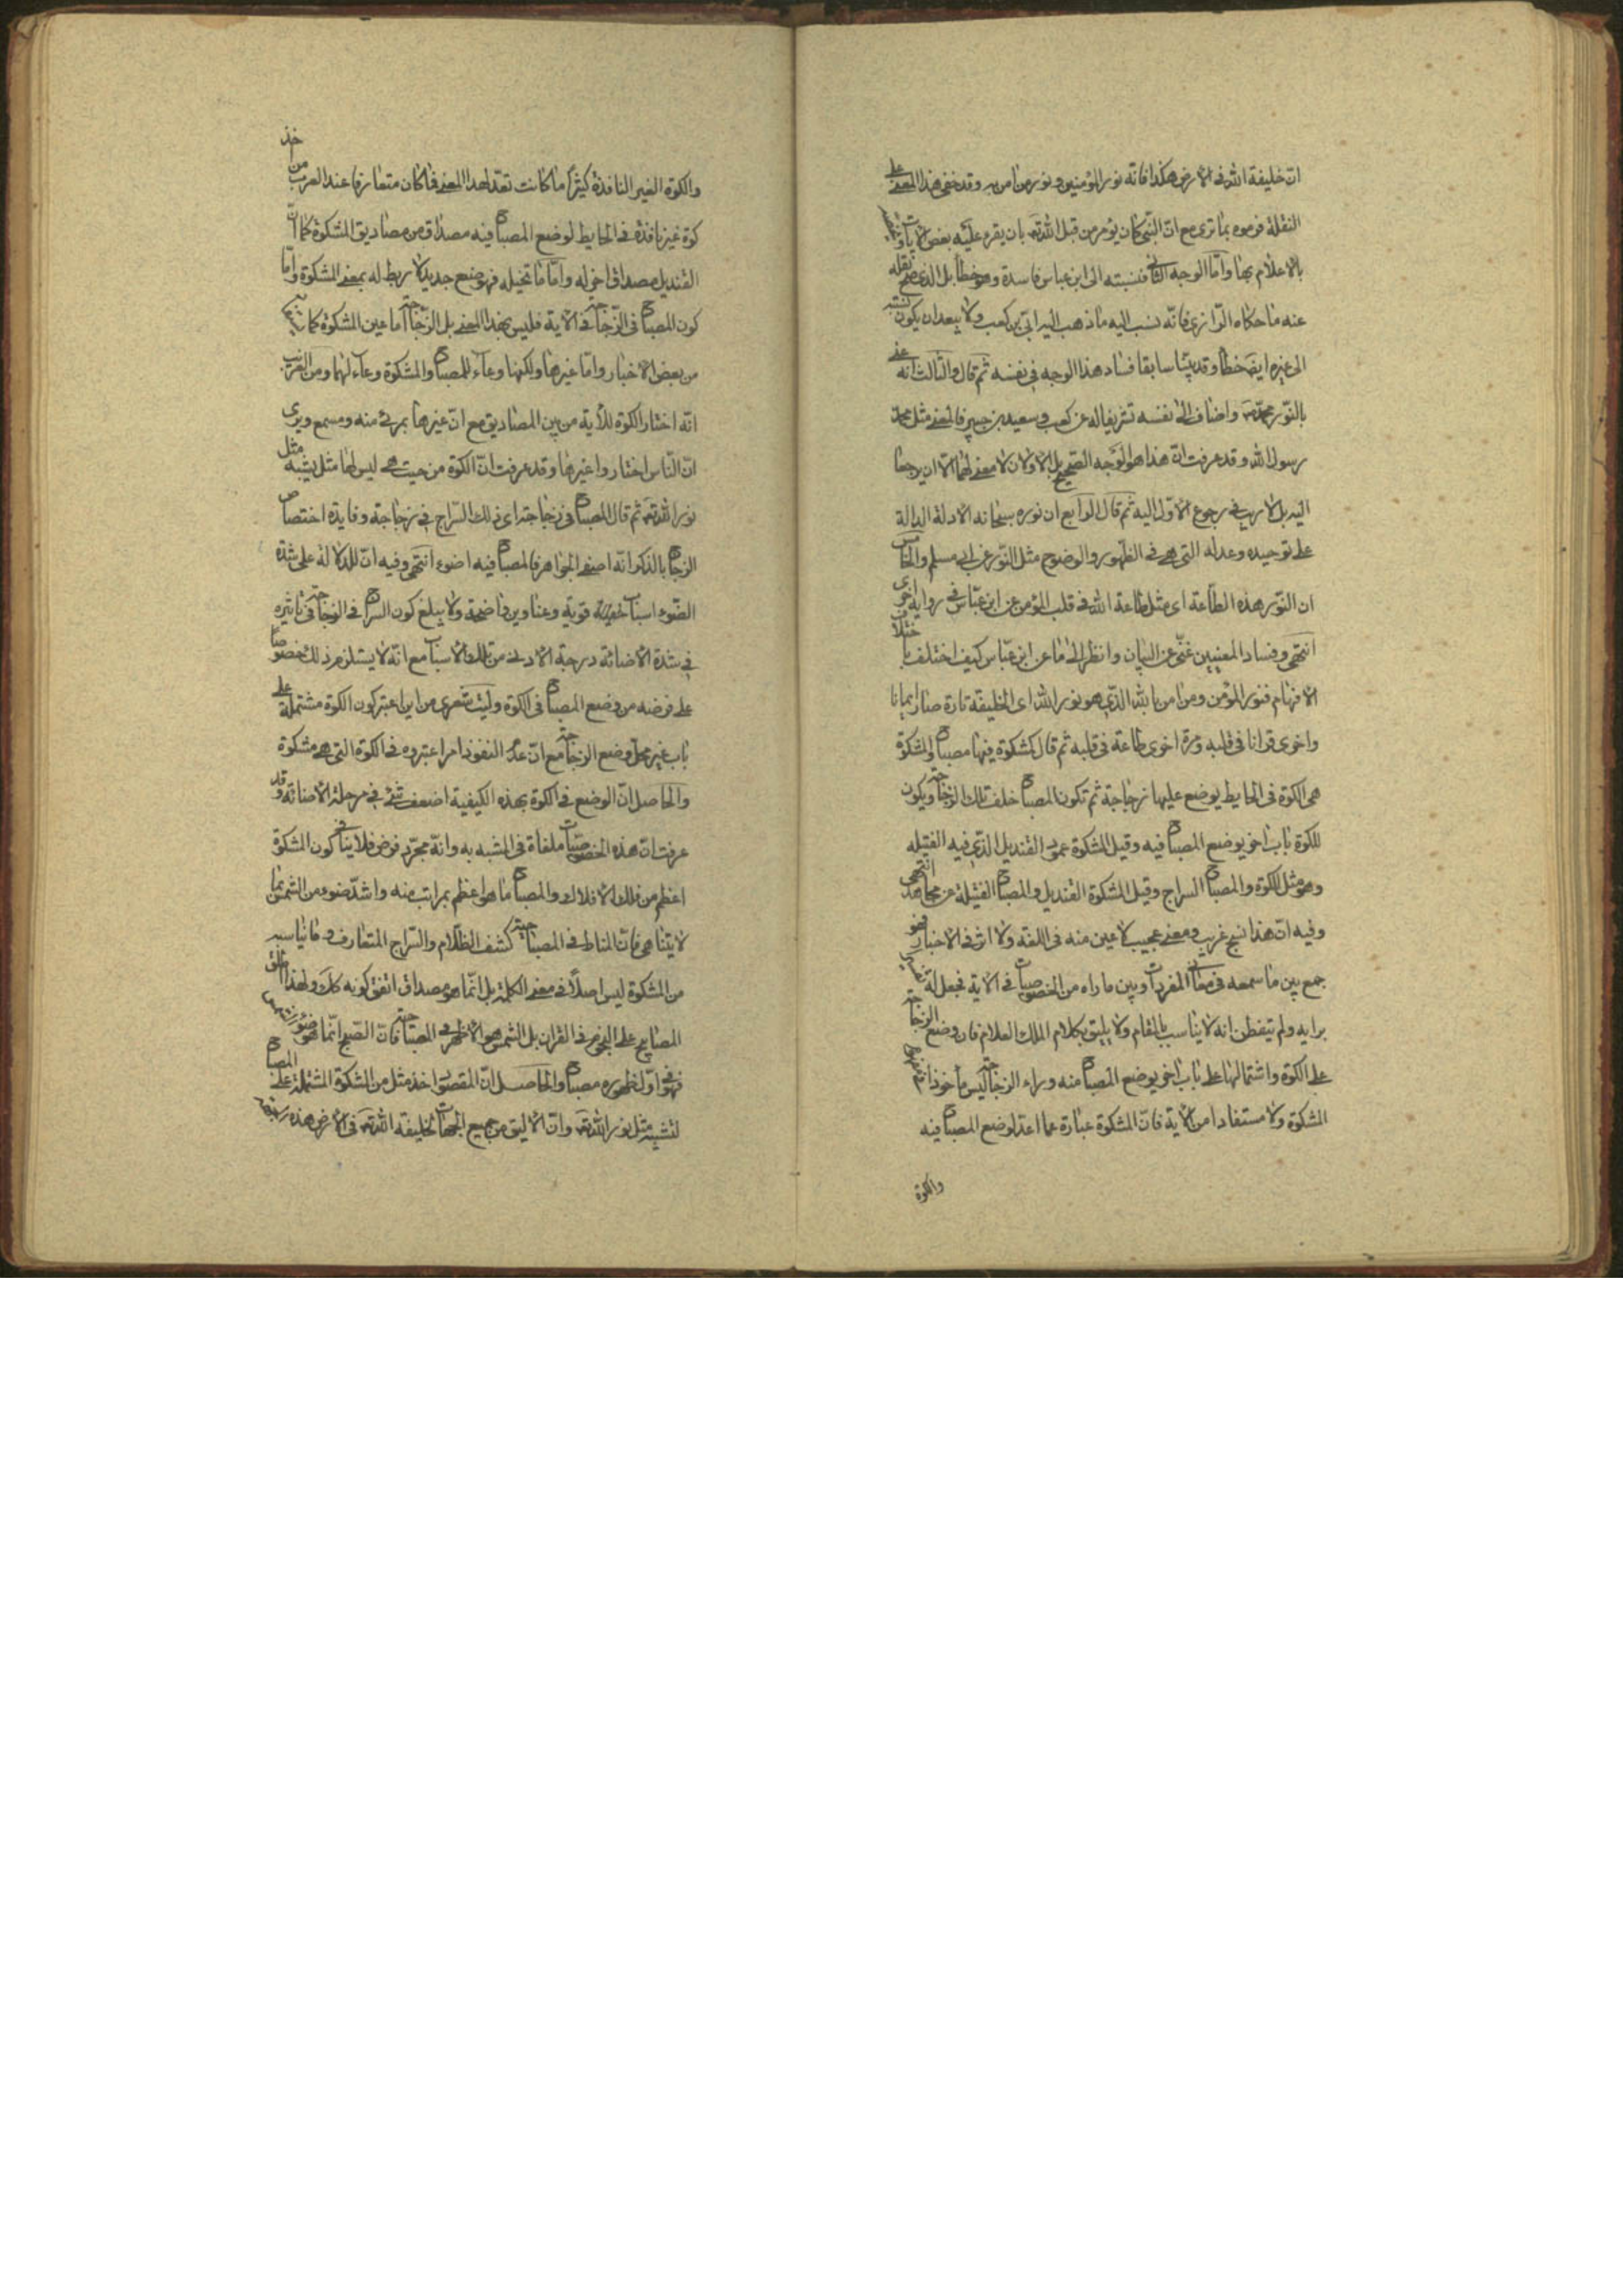 ان خليفة الله فى الارض هكذا فانه نور المؤمنين و نور من امن به وقد خفى هذا المعنى على
النقلة فرموه بما ترى مع ان النبى كان يؤمر من قبل الله تعه بان يقرء عليه بعض الايات
بالاعلام بها واما الوجه الثانى فنسبته الى ابن عباس فاسدة وهو خطأ بل الذى صح نقله
عنه ما حكاه الرازى فانه نسب اليه ما ذهب اليه ابىّ بن كعب ولا يبعد ان يكون نسبته
الى غيره ايضا خطأ وقد بينا سابقا فساد هذا الوجه فى نفسه ثم قال والثالث انه عنى
بالنور محمد واضاف الى نفسه تشريفا له عن كعب و سعيد بن جبير فالمعنى مثل محمد
رسول الله وقد عرفت ان هذا هو الوجه الصحيح بل الاولان لا معنى لهما الا ان يرجعا
اليه بل لا ريب فى رجوع الاول اليه ثم قال الرابع ان نوره سبحانه الادلة الدالة
على توحيده وعدله التى هى فى الظهور والوضوح مثل النور عن ابى مسلم والخامس
ان النور هذه الطاعة اى مثل طاعة الله فى قلب المؤمن عن ابن عباس فى رواية اخرى
انتهى وفساد المعنيين غنى عن البيان وانظر الى ما عن ابن عباس كيف اختلف باختلاف
الافهام فنور المؤمن ومن امن بالله الذى هو نور الله اى الخليفة تارة صار ايمانا
واخرى قرانا فى قلبه ومرة اخرى طاعة فى قلبه ثم قال كمشكوة فيها مصباح والمشكوة
هى الكوة فى الحايط يوضع عليها زجاجة ثم تكون المصباح خلف تلك الزجاجة ويكون
للكوة باب اخر يوضع المصباح فيه وقيل المشكوة عمود القنديل الذى فيه الفتيلة
وهو مثل الكوة والمصباح السراج وقيل المشكوة القنديل والمصباح الفتيلة عن مجاهد انتهى
وفيه ان هذا نسج غريب ومعنى عجيب لا عين منه فى اللغة ولا اثر فى الاخبار فهو
جمع بين ما سمعه فى معانى المفردات وبين ما راه من الخصوصيات فى الاية فجعل له
برايه ولم يتفطن انه لا يناسب بالمقام ولا يليق بكلام الملك العلام فان وضع الزجاجة
على الكوة واشتمالها على باب اخر يوضع المصباح منه وراء الزجاجة ليس ماخوذا
المشكوة ولا مستفادا من الاية فان المشكوة عبارة عما اعد لوضع المصباح فيه
والكوة
والكوة الغير النافذة كثيرا ما كانت تعد لهذا المعنى فما كان متعارفا عند العرب من اخذ
كوة غير نافذة فى الحايط لوضع المصباح فيه مصداق من مصاديق المشكوة كما ان
القنديل مصداق اخر له واما ما تخيله فهو وضع جديد لا ربط له بمعنى المشكوة واما
كون المصباح فى الزجاجة فى الاية فليس بهذا المعنى بل الزجاجة اما عين المشكوة كما
من بعض الاخبار واما غيرها ولكنها وعاء للمصباح والمشكوة وعاء لهما ومن الغريب
انه اختار الكوة للاية من بين المصاديق مع ان غيرها بمرئى منه ومسمع ويرى
ان الناس اختاروا غيرها وقد عرفت ان الكوة من حيث هى ليس لها مثل يشبه مثل
نور الله تعه ثم قال المصباح فى زجاجة اى ذلك السراج فى زجاجة وفايدة اختصاص
الزجاج بالذكر انه اصفى الجواهر فالمصباح فيه اضوء انتهى وفيه ان للدلالة على شدة
الضوء اسباب قوية وعناوين واضحة ولا يبلغ كون السراج فى الزجاجة فى تاثيره
فى شدة الاضائة درجة الادنى من تلك الاسباب مع انه لا يستلزم ذلك خصوصا
على فرضه من وضع المصباح فى الكوة وليت شعرى من اين اعتبر كون الكوة مشتملة على
باب غير محل وضع الزجاجة مع ان عدم النفوذ امر اعتبروه فى الكوة التى هى مشكوة
والحاصل ان الوضع فى الكوة بهذه الكيفية اضعف شئ فى مرحلة الاضائة وقد
عرفت ان هذه الخصوصيات ملغاة فى المشبه به وانه مجرد فرض فلا ينافى كون المشكوة
اعظم من فلك الافلاك والمصباح ما هو اعظم بمراتب منه واشد ضوء من الشمس بما
لا يتناهى فان المناط فى المصباحية كشف الظلام والسراج المتعارف وما يناسبه
من المشكوة ليس اصلا فى معنى الكلمة بل انما هو مصداق اتفق كونه كك ولهذا اطلق
المصابيح على النجوم فى القران بل الشمس هو الاظهر فى المصباحية فان الصبح انما هو ضوء
فهو فى اول ظهوره مصباح والحاصل ان المقصود اخذ مثل من المشكوة المشتملة على المصباح
لتشبيه مثل نور الله تعه وان الاليق من جميع الجهات لخليفة الله تعه فى الارض هذه